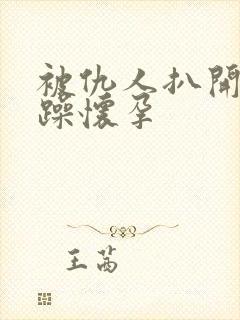 被仇人扒開
躁懷孕
王茜